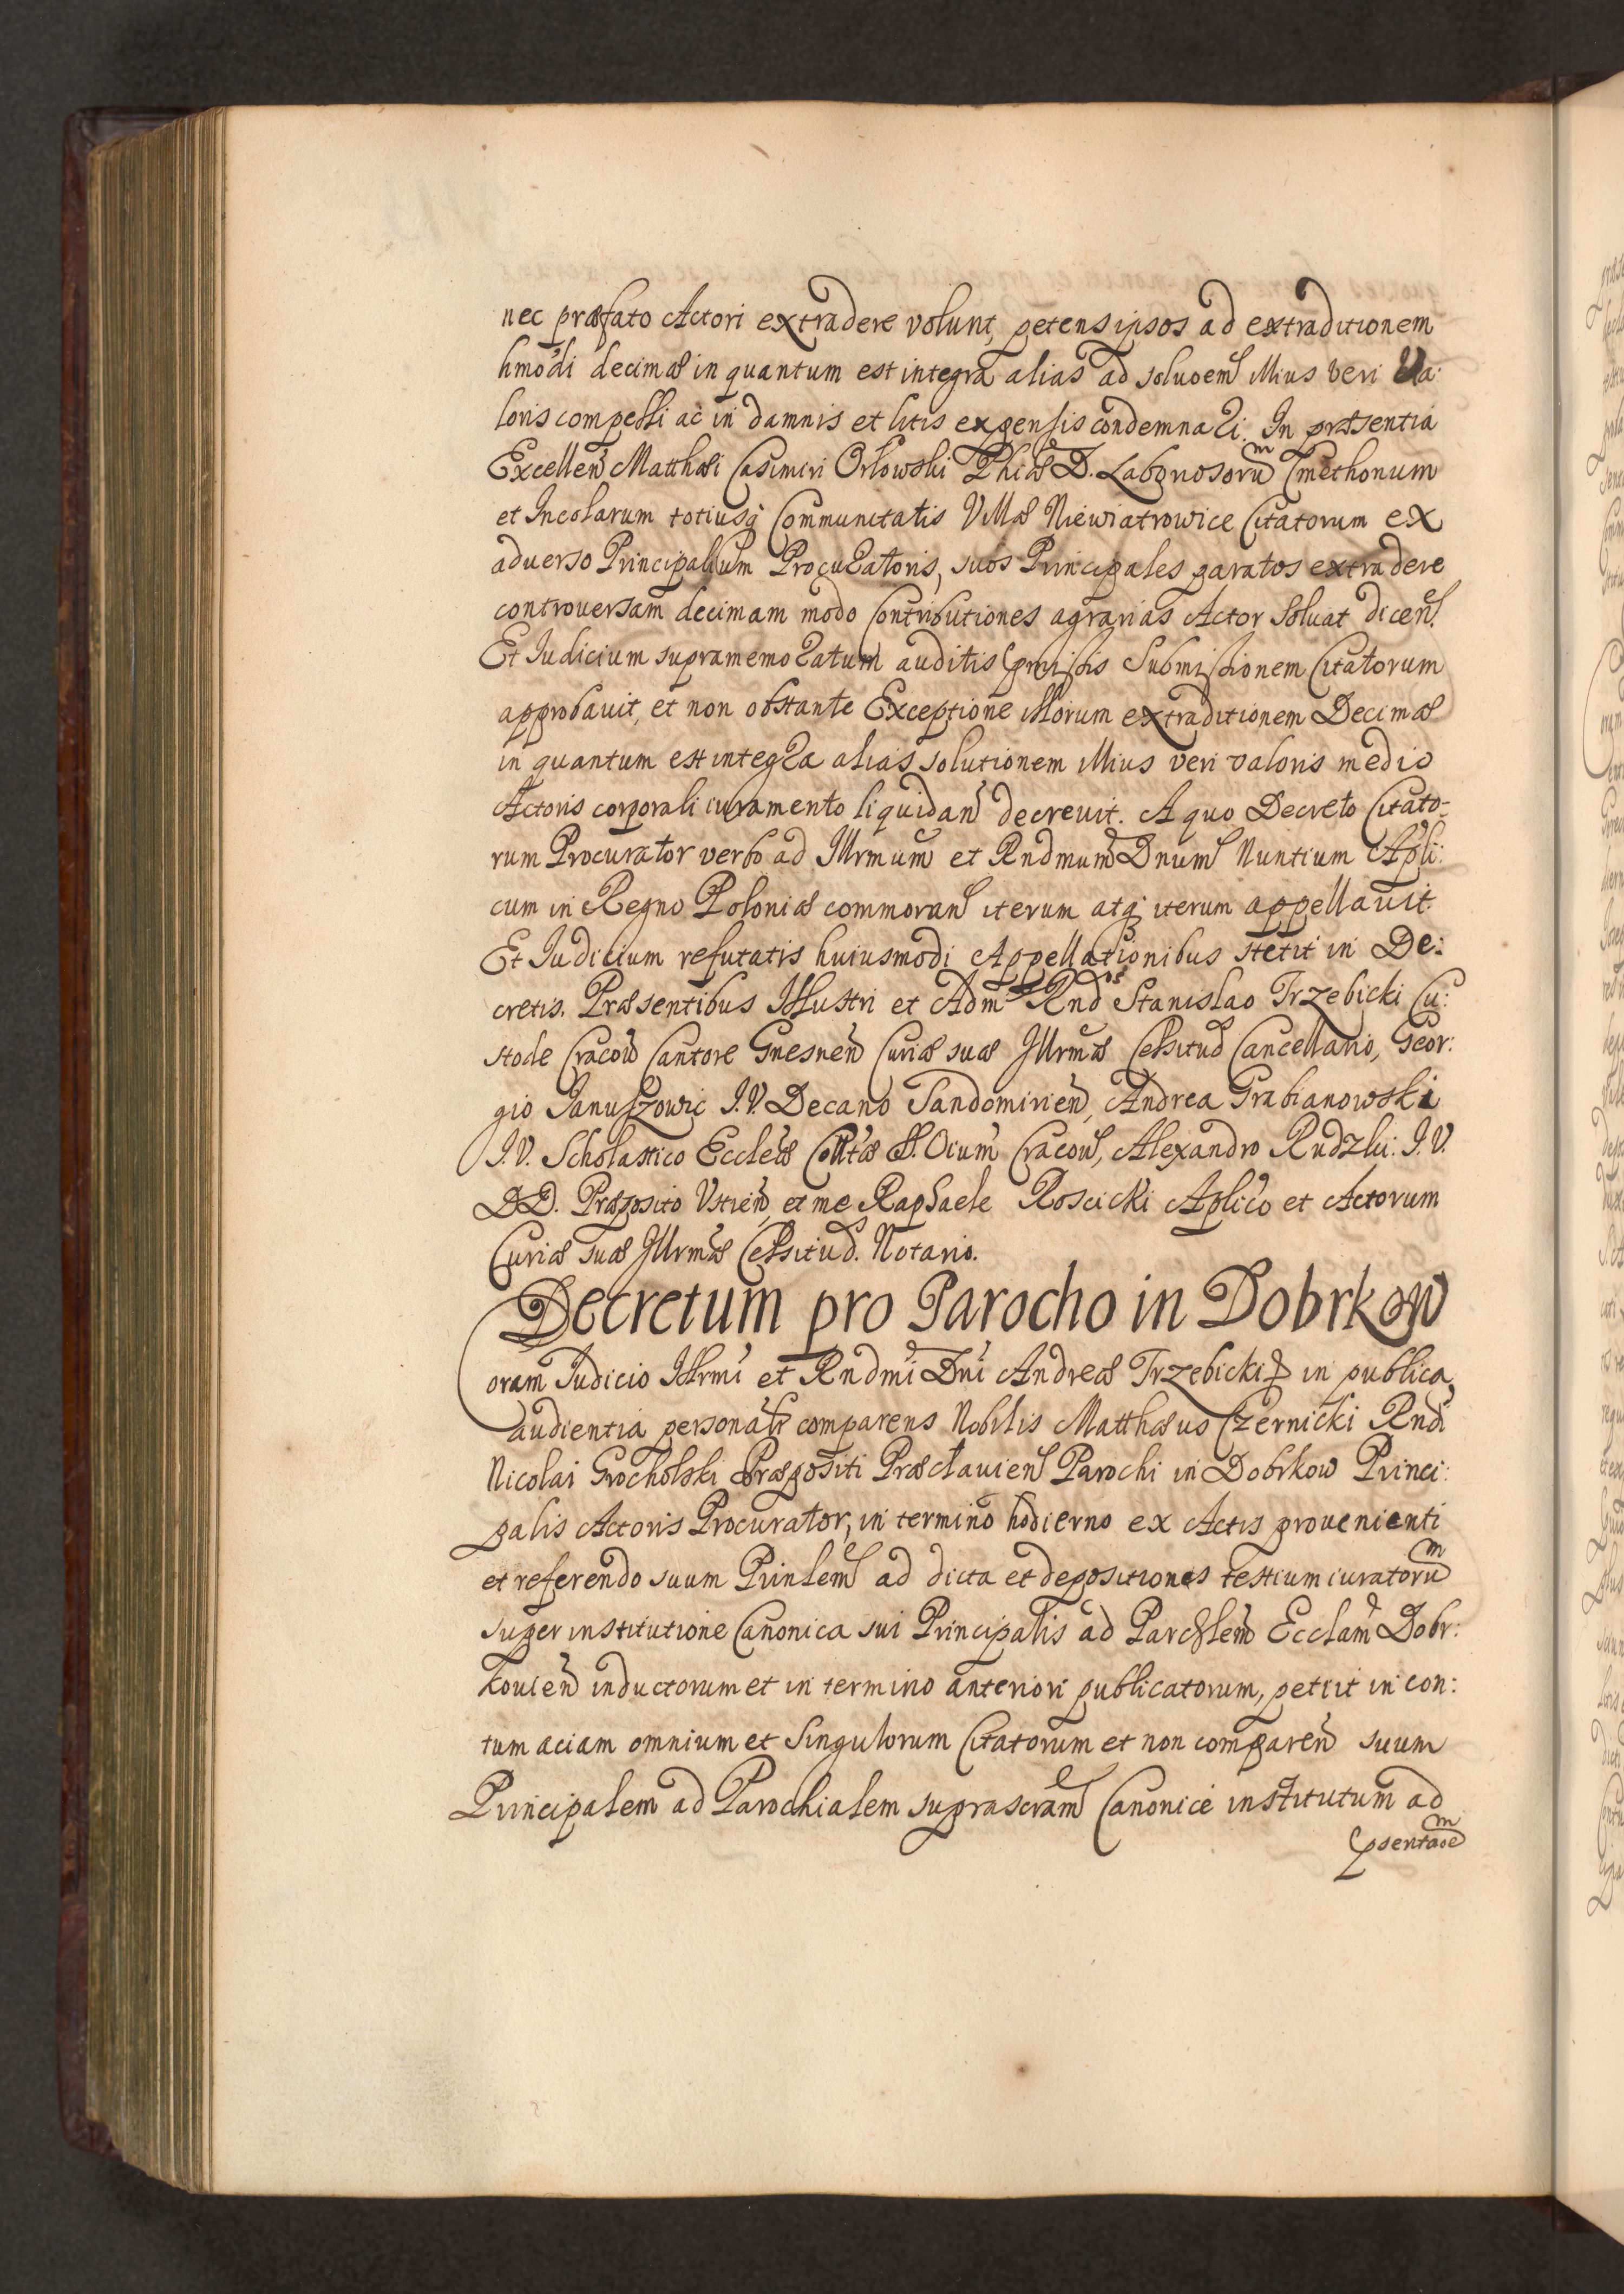 nec præfato Actori extradere volunt, petens ipsos ad extraditionem
hmodi decimæ in quantum est integra alias ad soluoem illius veri Va:
loris compelli ac in damnis et litis expensis condemnari. In præsentia
Excellen Matthæi Casimiri Orłowski Phiæ D. Laboriosorum Cmethonum
et Incolarum totiusq Communitatis Villæ Niewiatrowice Citatorum ex
aduerso Principalium Procuratoris, suos Principales paratos extradere
controversam decimam modo Contributiones agrarias Actor Soluat dicen.
Et Iudicium supramemoratum auditis pmissis Submissionem Citatorum
approbauit, et non obstante Exceptione illorum extraditionem Decimæ
in quantum est integra alias solutionem illius veri valoris medio
Actoris corporali iuramento liquidan decrevit. A quo Decreto Citato-
rum Procurator verbo ad Illrmum et Rndmum Dnum Nuntium Apli:
cum in Regno Poloniæ commoran iterum atq iterum appellauit.
Et Iudicium refutatis huiusmodi Appellationibus stetit in De:
cretis. Præsentibus Illustri et Adm Rndis Stanislao Trzebicki Cu:
stode Cracow Cantore Gnesnen Curiæ suæ Illrmæ Celsitud Cancellario, Geor:
gio Januszowic I.V. Decano Sandomirien, Andrea Grabianowski
I.V. Scholastico Eccleæ Colltæ S. Oium Cracow, Alexandro Rudzki: I.V.
DD. Præposito Vstien, et me Raphaele Roscicki Aplico et Actorum
Curiæ suæ Illrmæ Celsitud. Notario.
Decretum pro Parocho in Dobrkow
Coram Iudicio Illrmi et Rndmi Dni Andreæ Trzebicki in publica
audientia personalr comparens Nobilis Matthæus Czernicki Rndi
Nicolai Grocholski Præpositi Præclauien Parochi in Dobrkow Princi:
palis Actoris Procurator, in termino hodierno ex Actis provenienti
et referendo suum Prinlem ad dicta et depositiones testium iuratorum
super institutione Canonica sui Principalis ad Parochlem Ecclam Dobr:
kouien inductorum et in termino anteriori publicatorum, petiit in con:
tumaciam omnium et Singulorum Citatorum et non comparen suum
Principalem ad Parochialem suprascram Canonice institutum ad
psentaoem